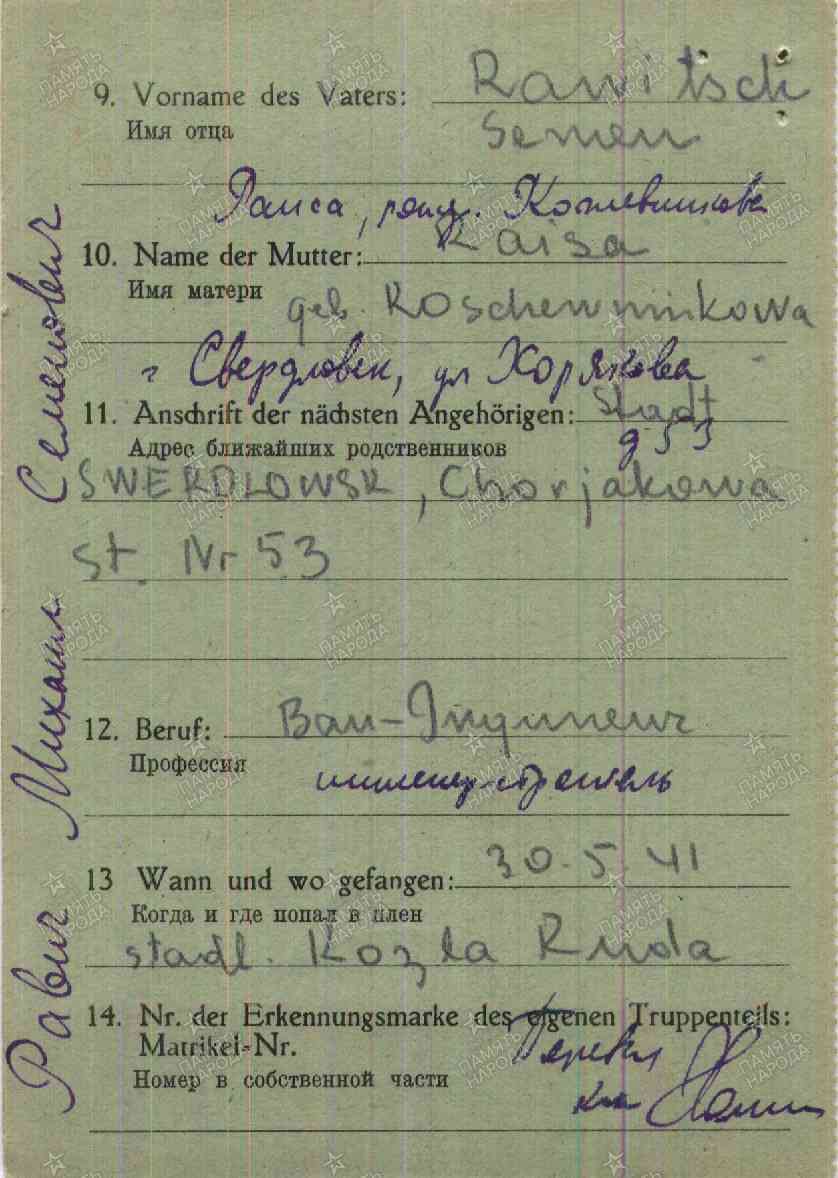 9. Vorname des Vaters: Rawitsch
Имя отца Semen
Раиса, рожд. Кожевникова
10. Name der Mutter: Raisa
Имя матери
geb. Koschewnikowa
г Свердловск, ул Хорякова
11. Anschrift der nächsten Angehörigen: Stadt
Адрес ближайших родственников д 53
SWERDLOWSK, Chorjakowa
St. Nr 53
12. Beruf: Bau-Ingenieur
Профессия инженер-строитель
13 Wann und wo gefangen: 30.5.41
Когда и где попал в плен
stadl. Kozla Ruda
14. Nr. der Erkennungsmarke des eigenen Truppenteils:
Matrikel-Nr.
Номер в собственной части
Перевел
Равич Михаил Семенович
ПАМЯТЬ
НАРОДА